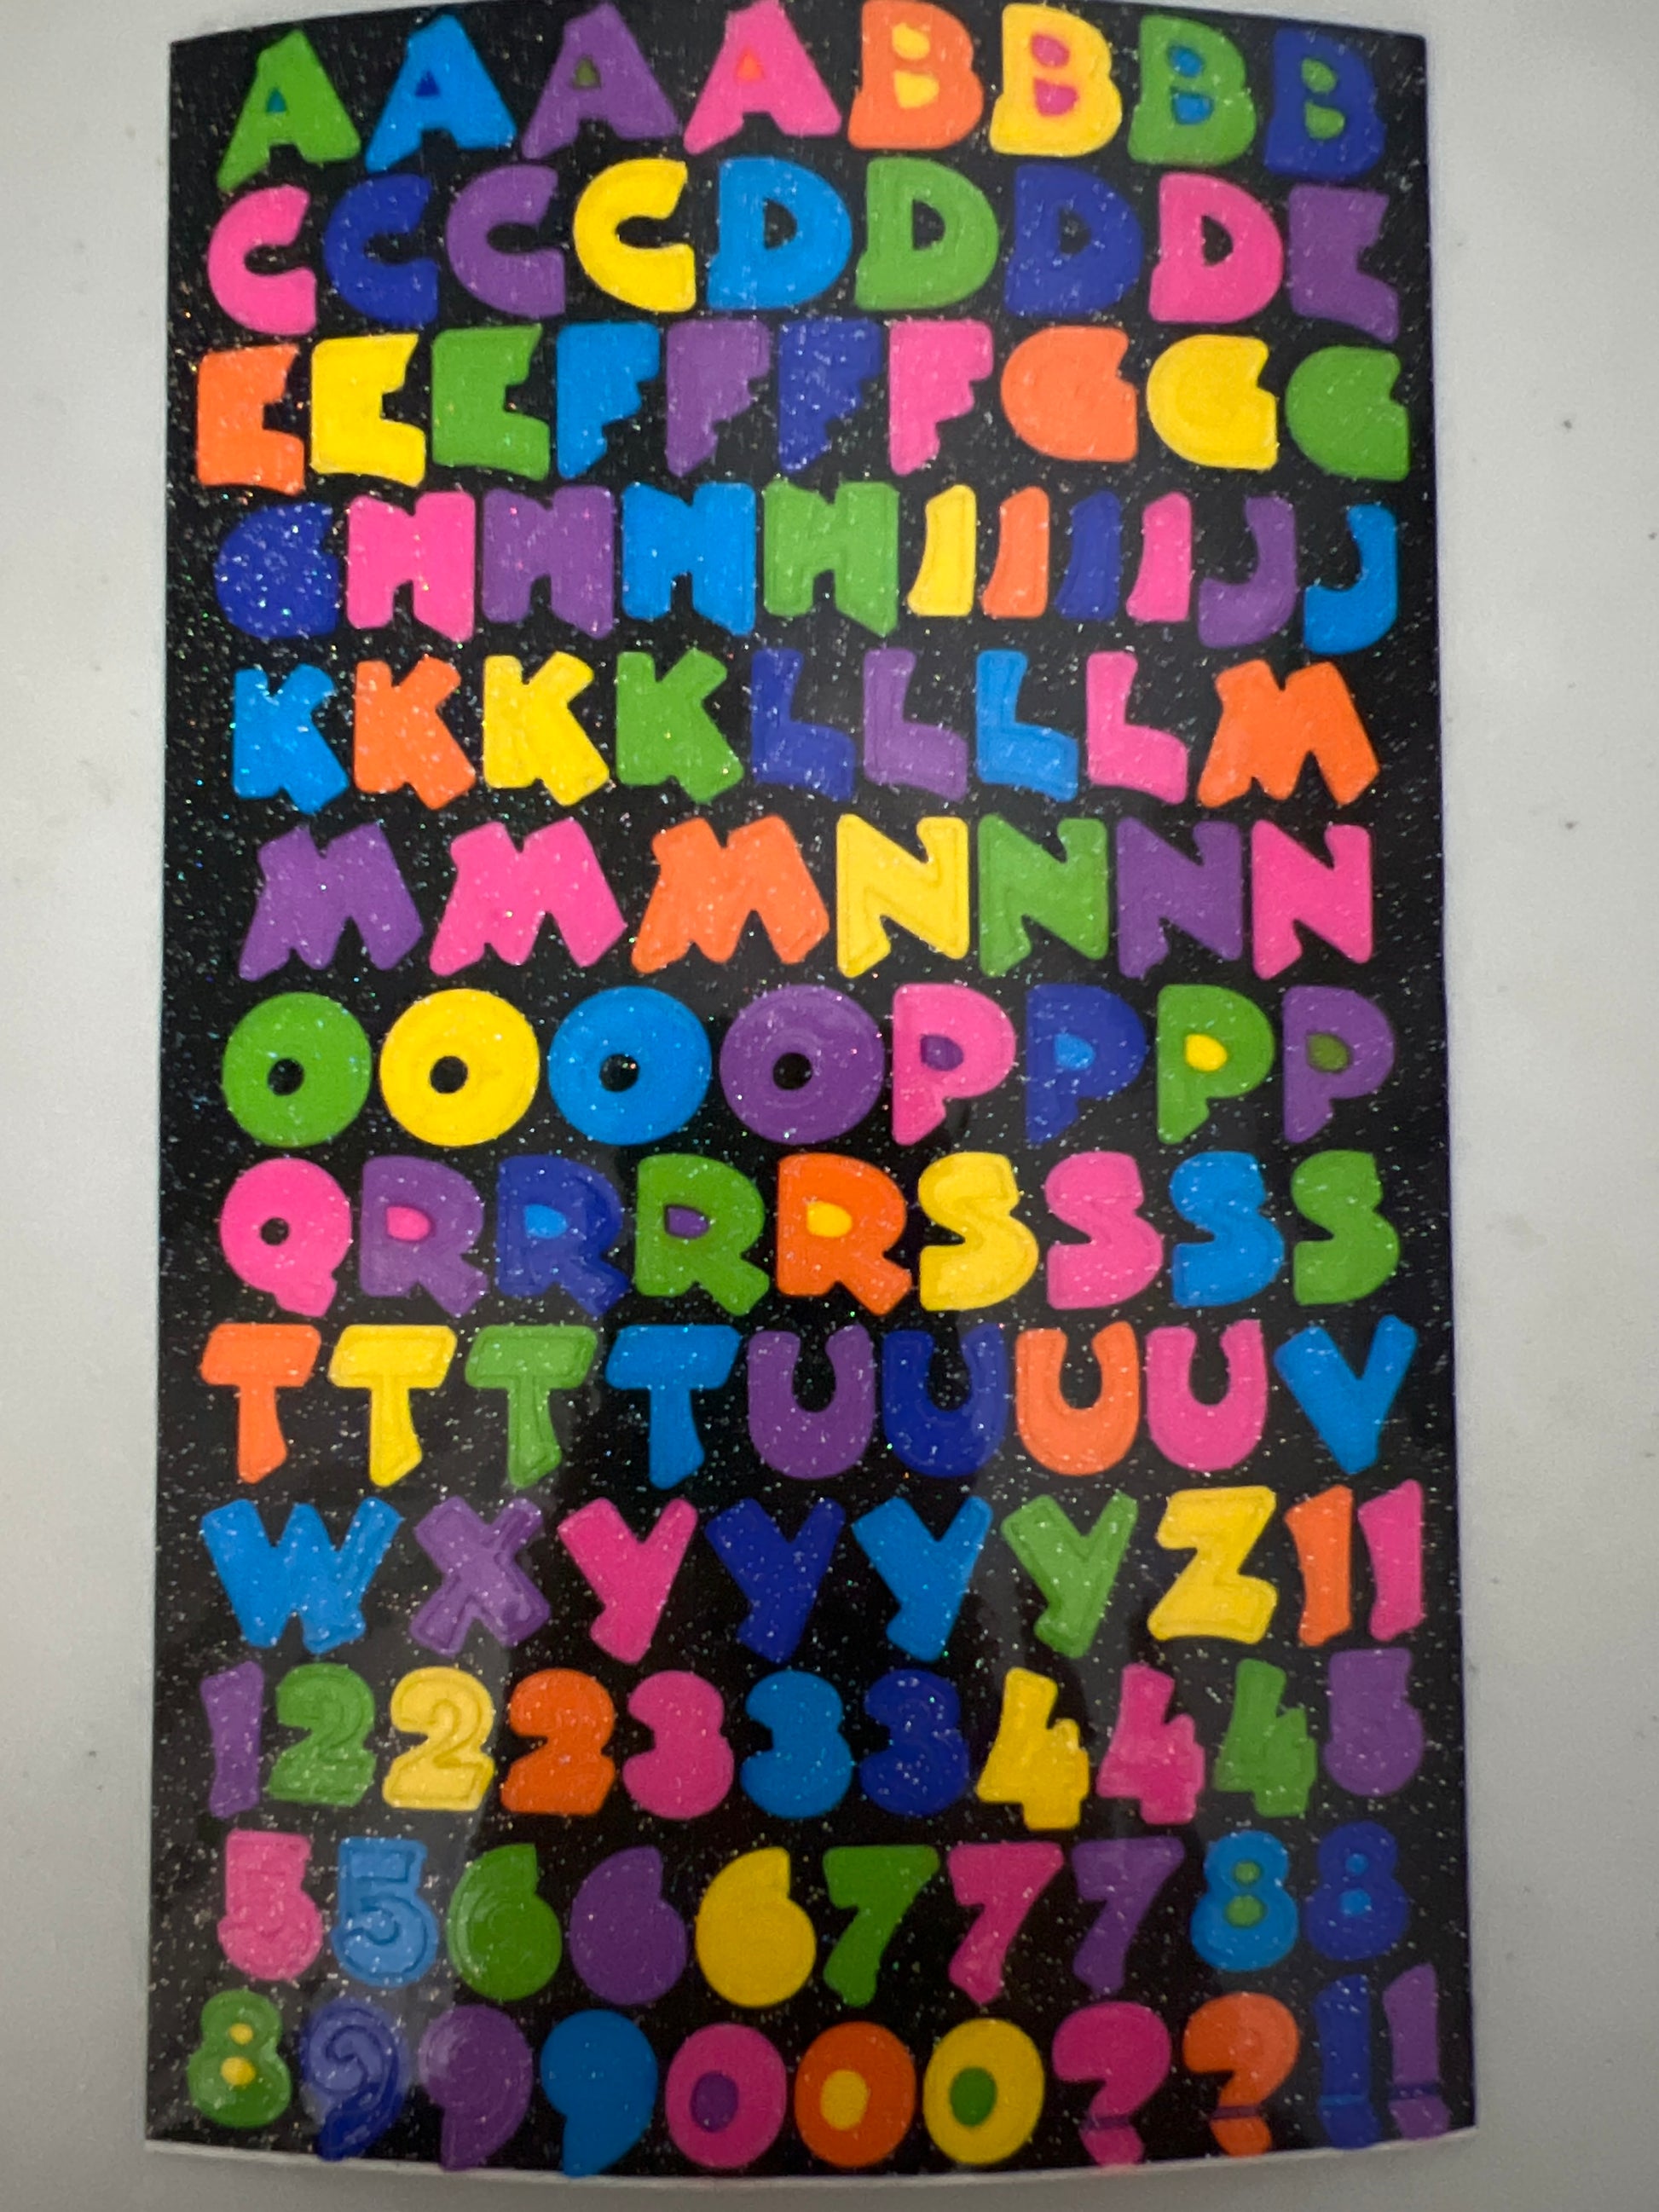 AAAABBBB
CCCCDDDDE
EEEFFFFGGG
GHHHHIIIIJJ
KKKKLLLLM
MMMNNNN
OOOOPPPP
QRRRRSSSS
TTTTUUUUV
WXYYYYZ11
12223334445
5566677788
8999000??!!